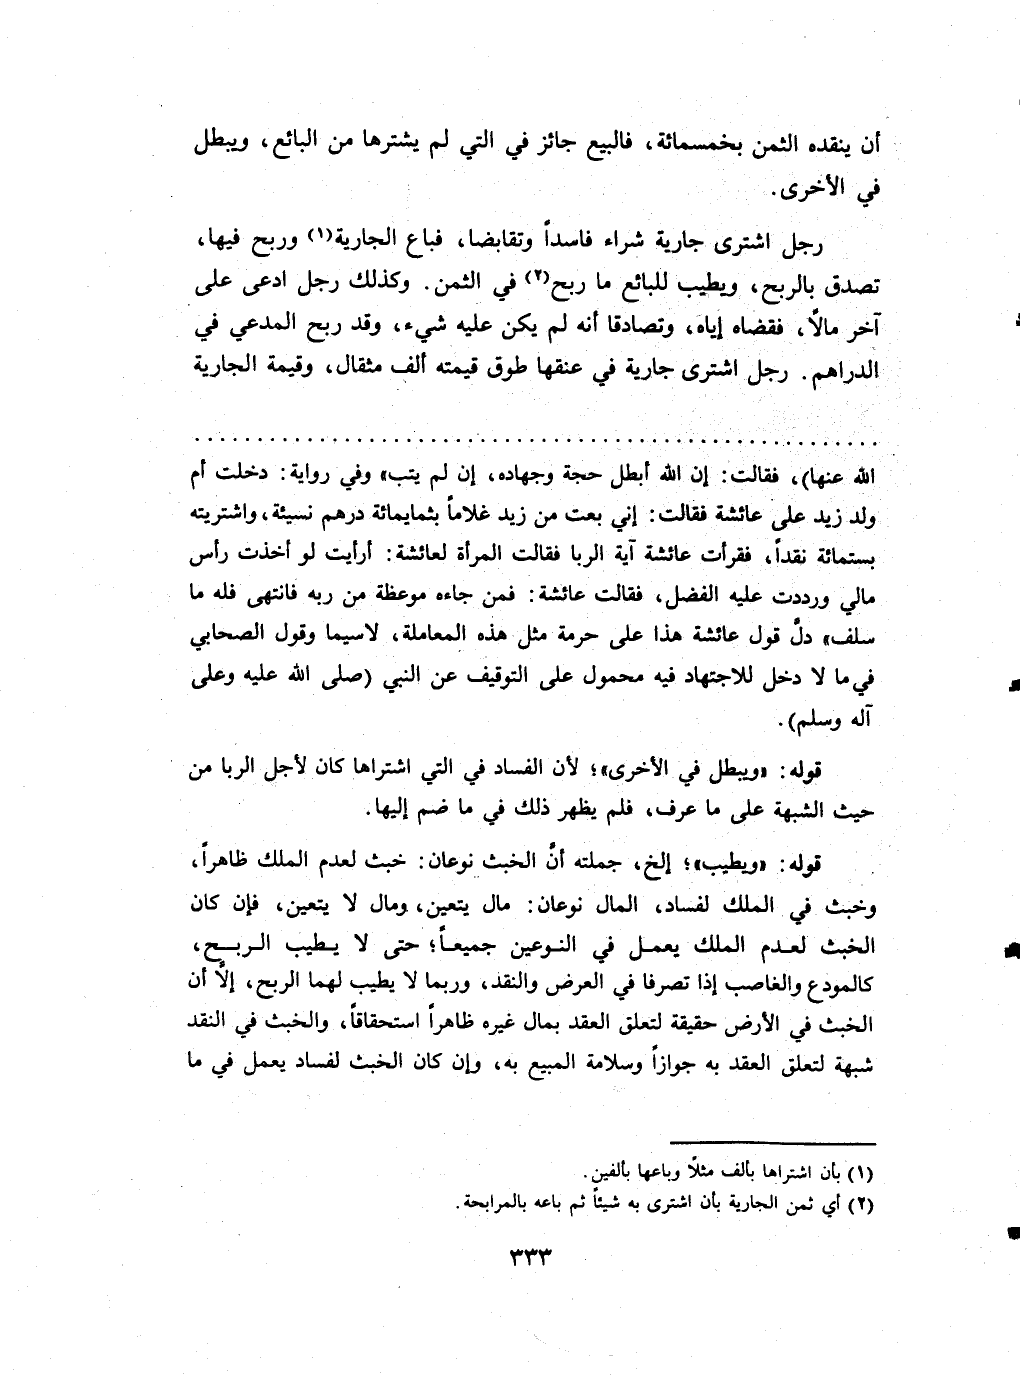 أن ينقده الثمن بخمسمائة، فالبيع جائز في التي لم يشترها من البائع، ويبطل
في الأخرى.
رجل اشترى جارية شراء فاسداً وتقابضا، فباع الجارية(١) وربح فيها،
تصدق بالربح، ويطيب للبائع ما ربح(٢) في الثمن. وكذلك رجل ادعى على
آخر مالاً، فقضاه إياه، وتصادقا أنه لم يكن عليه شيء، وقد ربح المدعي في
الدراهم. رجل اشترى جارية في عنقها طوق قيمته ألف مثقال، وقيمة الجارية
الله عنها)، فقالت: إن الله أبطل حجة وجهاده، إن لم يتب» وفي رواية: دخلت أم
ولد زيد على عائشة فقالت: إني بعت من زيد غلاماً بثمايمائة درهم نسيئة، واشتريته
بستمائة نقداً، فقرأت عائشة آية الربا فقالت المرأة لعائشة: أرأيت لو أخذت رأس
مالي ورددت عليه الفضل، فقالت عائشة: فمن جاءه موعظة من ربه فانتهى فله ما
سلف» دلَّ قول عائشة هذا على حرمة مثل هذه المعاملة، لاسيما وقول الصحابي
في ما لا دخل للاجتهاد فيه محمول على التوقيف عن النبي (صلى الله عليه وعلى
آله وسلم).
قوله: «ويبطل في الأخرى»؛ لأن الفساد في التي اشتراها كان لأجل الربا من
حيث الشبهة على ما عرف، فلم يظهر ذلك في ما ضم إليها.
قوله: «ويطيب»؛ إلخ، جملته أنَّ الخبث نوعان: خبث لعدم الملك ظاهراً،
وخبث في الملك لفساد، المال نوعان: مال يتعين، ومال لا يتعين، فإن كان
الخبث لعدم الملك يعمل في النوعين جميعاً؛ حتى لا يطيب الربح،
كالمودع والغاصب إذا تصرفا في العرض والنقد، وربما لا يطيب لهما الربح، إلَّا أن
الخبث في الأرض حقيقة لتعلق العقد بمال غيره ظاهراً استحقاقاً، والخبث في النقد
شبهة لتعلق العقد به جوازاً وسلامة المبيع به، وإن كان الخبث لفساد يعمل في ما
(١) بأن اشتراها بألف مثلاً وباعها بألفين.
(٢) أي ثمن الجارية بأن اشترى به شيئاً ثم باعه بالمرابحة.
٣٣٣